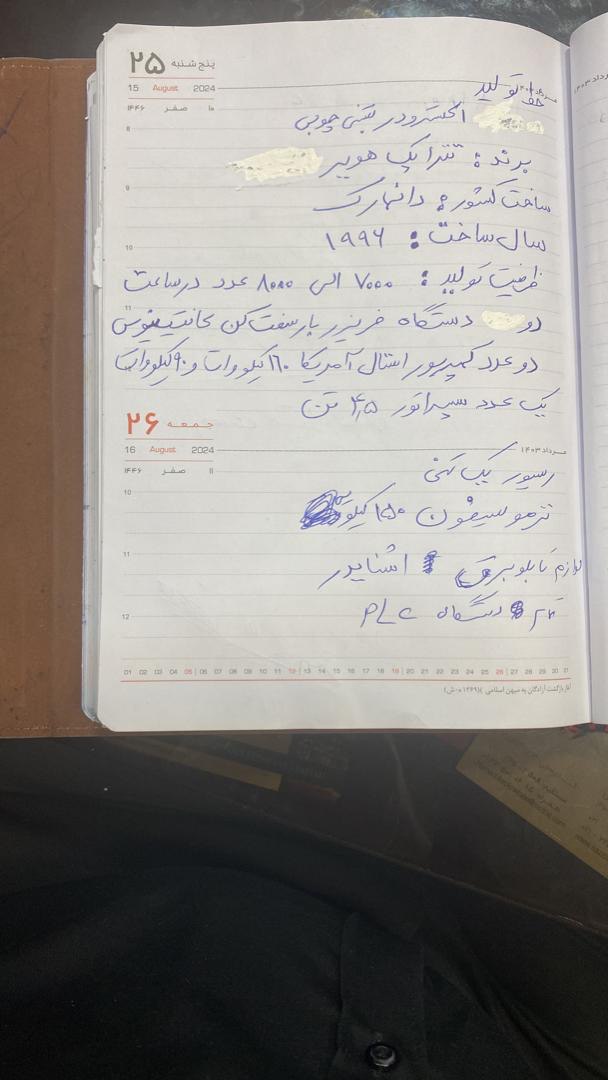 ۲۵ پنج شنبه
15 August 2024
۱۰ صفر ۱۴۴۶
خط تولید
8
اکسترودر بستنی چوبی
برند: تتراپک هویر
9
ساخت کشور: دانمارک
سال ساخت: ۱۹۹۶
10
ظرفیت تولید: ۷۰۰۰ الی ۸۰۰۰ عدد در ساعت
11
دو دستگاه فریزر بار سفت کن
دو عدد کمپرسور استال آمریکا ۱۶۰ کیلووات و ۹۰ کیلووات
یک عدد سپراتور ۴٫۵ تن
۲۶ جمعه
16 August 2024
مرداد ۱۴۰۳
۱۱ صفر ۱۴۴۶
رسیور یک تنی
10
ترموسیفون ۱۵۰ کیلو
11
لوازم تابلو برق اشنایدر
12
دستگاه PLC
01 02 03 04 05 06 07 08 09 10 11 12 13 14 15 16 17 18 19 20 21 22 23 24 25 26 27 28 29 30 31
آغاز بازگشت آزادگان به میهن اسلامی (۱۳۶۹ ه‍.ش)